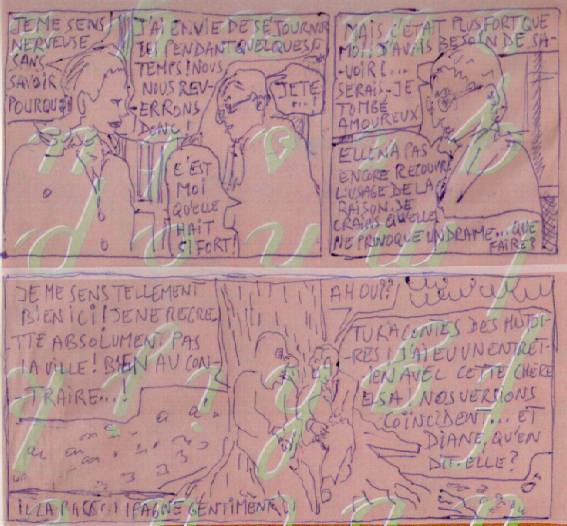 JE ME SENS
NERVEUSE
SANS
SAVOIR
POURQUOI
J'AI ENVIE DE SÉJOURNER
ICI PENDANT QUELQUES
TEMPS! NOUS
NOUS REV-
ERRONS
DONC!
JE TE
C'EST
MOI
QU'ELLE
HAIT
SI FORT!
MAIS C'ÉTAIT PLUS FORT QUE
MOI, J'AVAIS BESOIN DE SA-
-VOIR!...
SERAIS-JE
TOMBÉ
AMOUREUX
ELLE N'A PAS
ENCORE RECOUVRÉ
L'USAGE DE LA
RAISON. JE
CRAINS QU'ELLE
NE PROVOQUE UN DRAME... QUE
FAIRE?
JE ME SENS TELLEMENT
BIEN ICI! JE NE REGRE-
TTE ABSOLUMENT PAS
LA VILLE! BIEN AU CON-
-TRAIRE...!
AH OUI??
TU RACONTES DES HISTOI-
-RES! J'AI EU UN ENTRET-
IEN AVEC CETTE CHÈRE
ELSA! NOS VERSIONS
COÏNCIDENT... ET
DIANE, QU'EN
DIT-ELLE?
GENTIMENT